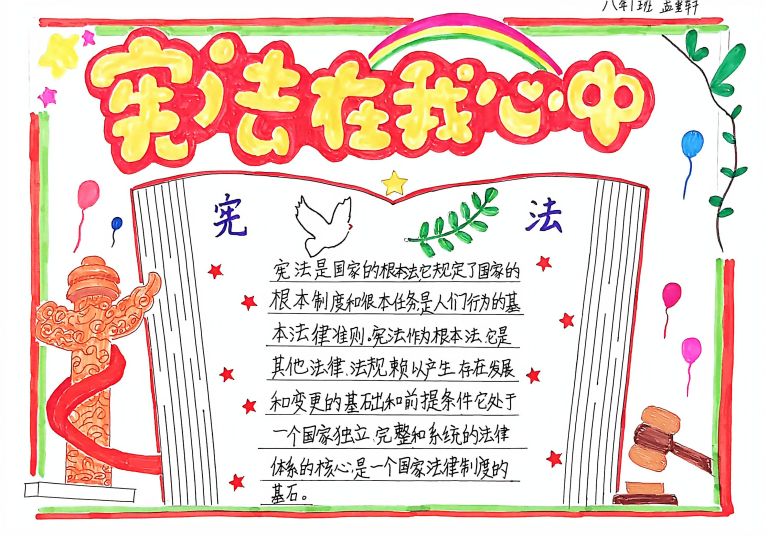 八年1班 孟
宪法在我心中
宪 法
宪法是国家的根本法,它规定了国家的
根本制度和根本任务,是人们行为的基
本法律准则,宪法作为根本法,它是
其他法律、法规,赖以产生、存在发展
和变更的基础和前提条件它处于
一个国家独立、完整和系统的法律
体系的核心,是一个国家法律制度的
基石。